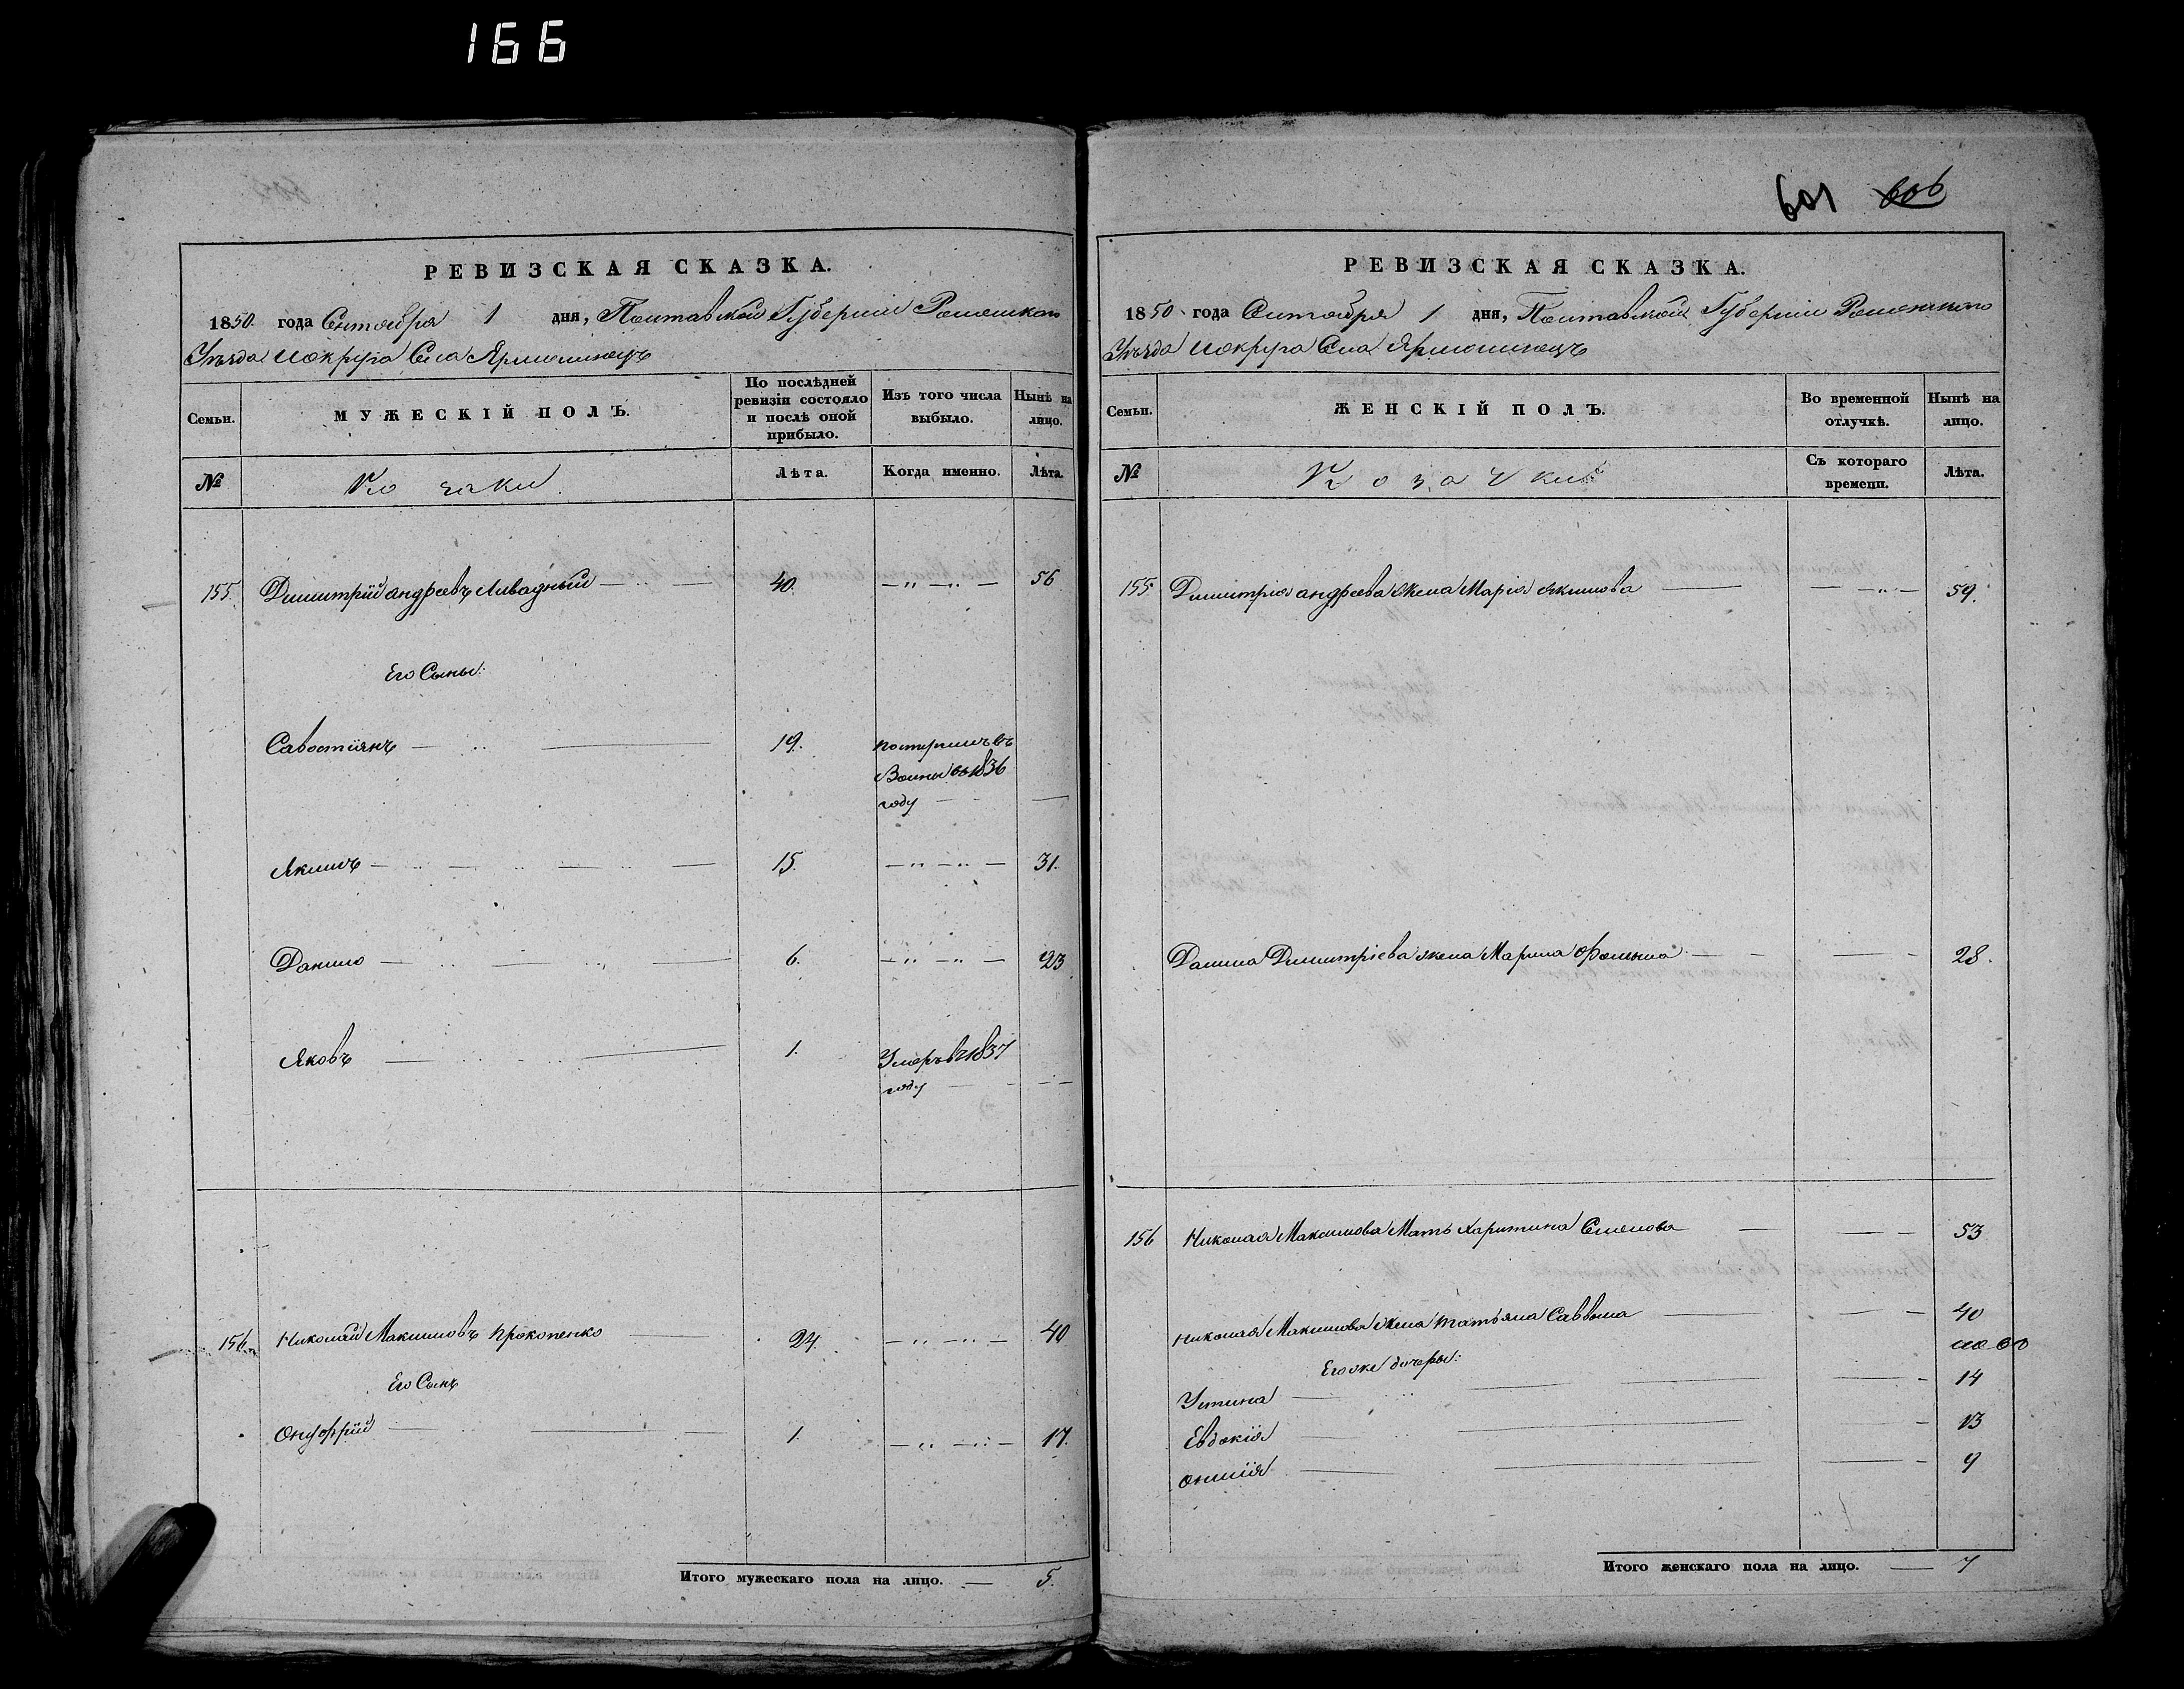 166
РЕВИЗСКАЯ СКАЗКА.
1850. года Сентября 1 дня, Полтавской Губернии Роменского
Уѣзда и округа Села Ярмолинецъ
Семьи.
МУЖЕСКІЙ ПОЛЪ.
По послѣдней ревизіи состояло и послѣ оной прибыло.
Изъ того числа выбыло.
Нынѣ на лицо.
№
Козаки
Лѣта.
Когда именно.
Лѣта.
155. Димитрій андреевъ Ливадный 40. 56
Его Сыны:
Савостіянъ 19. поступилъ въ
Воины въ 1836
году
Якимъ 15. 31.
Данило 6. 23
Яковъ 1. Умеръ въ 1837
году
156. Николай Максимовъ Прокопенко 24. 40
Его Сынъ
Онуфрій 1. 17.
Итого мужескаго пола на лицо. 5.
601 606
РЕВИЗСКАЯ СКАЗКА.
1850 года Сентября 1 дня, Полтавской Губерніи Роменского
Уѣзда и округа Села Ярмолинецъ
Семьи.
ЖЕНСКІЙ ПОЛЪ.
Во временной отлучкѣ.
Нынѣ на лицо.
№
Козачки
Съ котораго времени.
Лѣта.
155 Димитрія андреева жена Марія Якимова 59.
Данила Димитріева жена Марина Фомина 28.
156 Николая Максимова Мать Харитина Семенова 53
Николая Максимова жена Татьяна Саввина 40
Его же дочеры:
Устина 14
Евдокія 13
9
Итого женскаго пола на лицо. 7